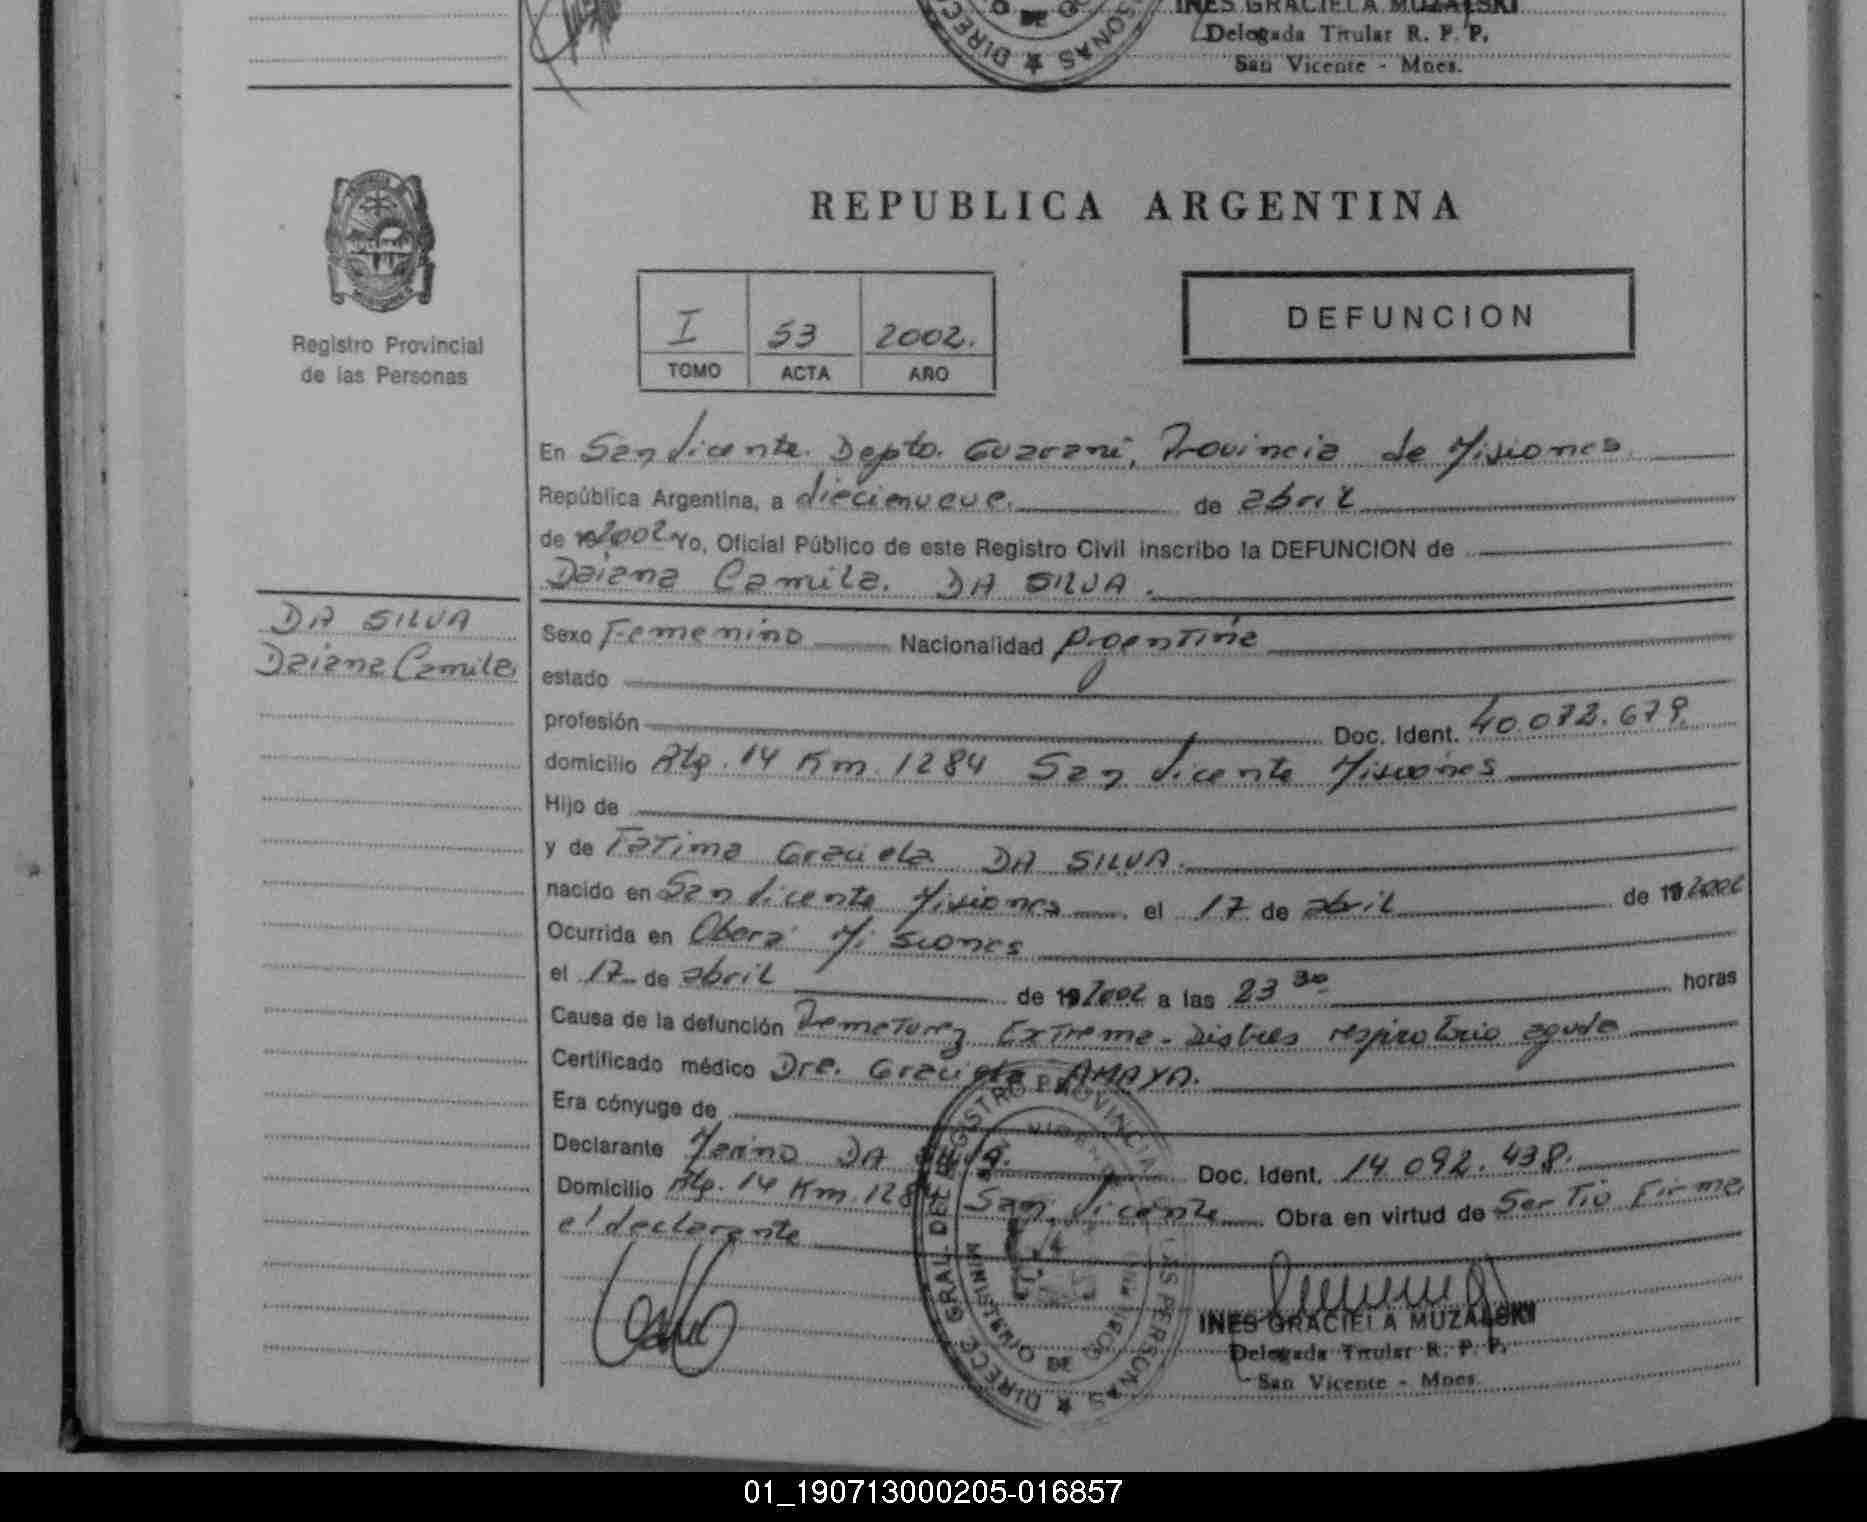 INES GRACIELA MUZALSKI
Delegada Titular R. P. P.
San Vicente - Mnes.
REPUBLICA ARGENTINA
Registro Provincial
de las Personas
I 53 2002.
TOMO ACTA AÑO
DEFUNCION
En San Vicente. Depto. Guarani, Provincia de Misiones
República Argentina, a diecinueve. de abril
de 2002 Yo, Oficial Público de este Registro Civil inscribo la DEFUNCION de
Daiana Camila. DA SILVA.
DA SILVA
Daiana Camila
Sexo Femenino Nacionalidad Argentina
estado
profesión Doc. Ident. 40.072.679.
domicilio Rta. 14 Km. 1284 San Vicente Misiones
Hijo de
y de Fatima Graciela DA SILVA.
nacido en San Vicente Misiones el 17 de abril de 192002
Ocurrida en Obera Misiones
el 17 de abril de 192002 a las 23 30 horas
Causa de la defunción Prematurez Extrema - Distres respiratorio agudo
Certificado médico Dra. Graciela AMAYA.
Era cónyuge de
Declarante Marino DA SILVA. Doc. Ident. 14.092.438.
Domicilio Rta. 14 Km. 1284 San Vicente Obra en virtud de Ser Tio Firma
el declarante
DIRECC. GRAL. DEL REGISTRO PROVINCIAL DE LAS PERSONAS
MINISTERIO DE GOBIERNO
INES GRACIELA MUZALSKI
Delegada Titular R. P. P.
San Vicente - Mnes.
01_190713000205-016857